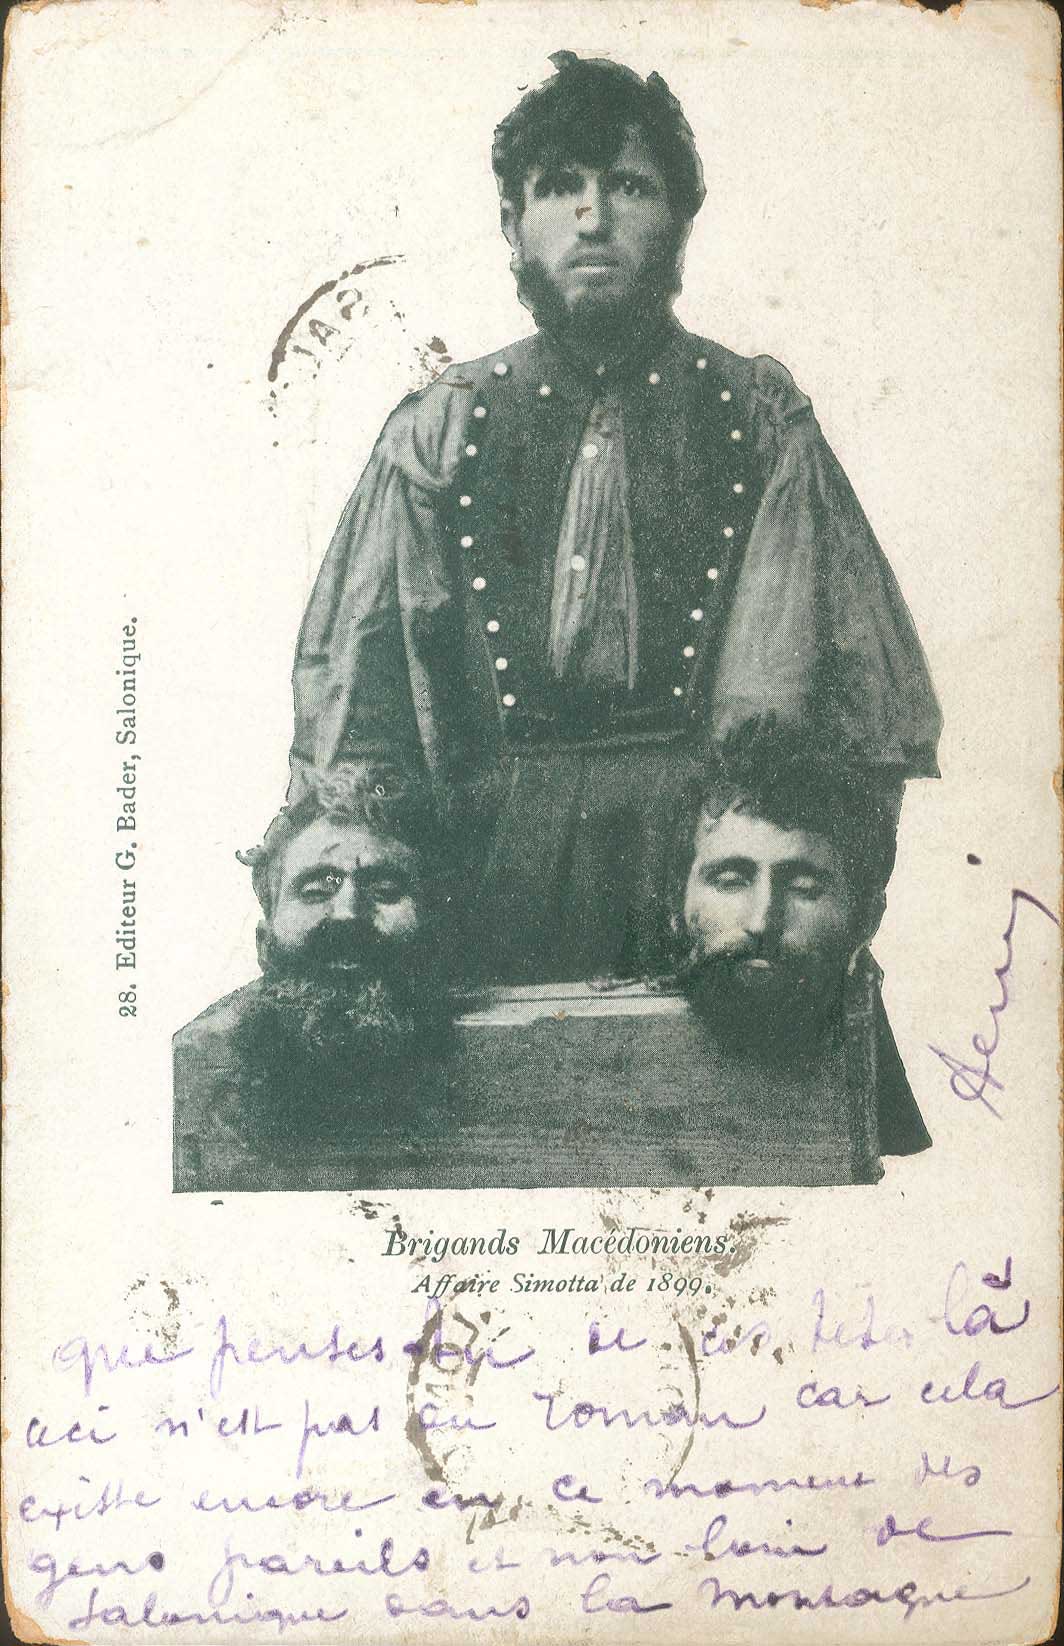 28. Editeur G. Bader, Salonique.
Henri
Brigands Macédoniens.
Affaire Simotta de 1899.
que penses tu de ces tetes là
ceci n'est pas du roman car cela
existe encore en ce moment des
gens pareils et non loin de
Salonique dans la montagne